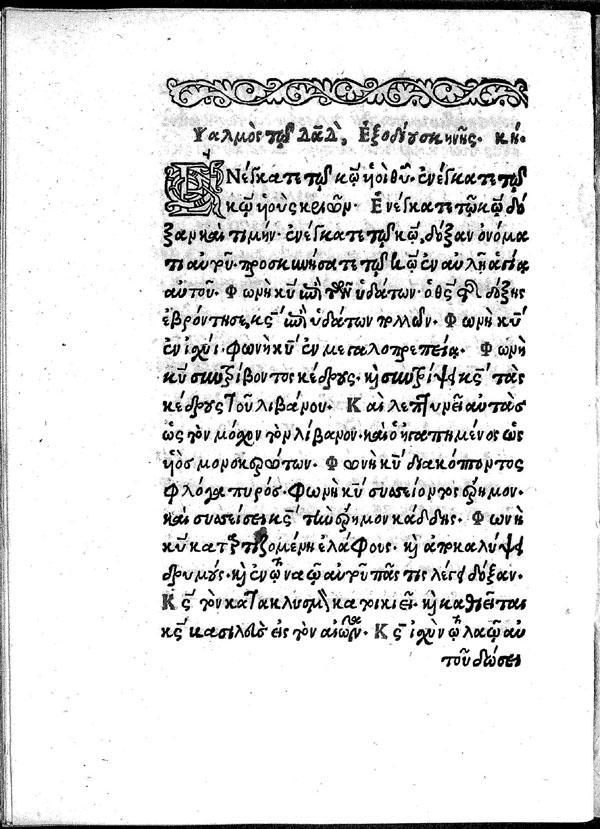 Ψαλμὸς τῷ Δαδ̀, Ἐξοδίου σκηνῆς. κη.
ΕΝέγκατε τῷ κῷ ὑοὶ θῦ. ἐνέγκατε τῷ
κῷ ὑοὺς κριῶν. Ἐνέγκατε τῷ κῷ δό
ξαν καὶ τιμήν. ἐνέγκατε τῷ κῷ, δόξαν ὀνόμα
τι αὐτοῦ. προσκυνήσατε τῷ κῷ ἐν αὐλῇ ἁγίᾳ
αὐτοῦ. Φωνὴ κῦ ἐπὶ τῶν ὑδάτων. ὁ θς τῆς δόξης
ἐβρόντησε, κς ἐπὶ ὑδάτων πολλῶν. Φωνὴ κῦ
ἐν ἰσχύϊ. φωνὴ κῦ ἐν μεγαλοπρεπείᾳ. Φωνὴ
κῦ συντρίβοντος κέδρους. κὴ συντρίψει κς τὰς
κέδρους τοῦ λιβάνου. Καὶ λεπτυνεῖ αὐτὰς
ὡς τὸν μόσχον τὸν λίβανον. καὶ ὁ ἠγαπημένος ὡς
ὑὸς μονοκερώτων. Φωνὴ κῦ διακόπτοντος
φλόγα πυρός. Φωνὴ κῦ συσσείοντος ἔρημον.
καὶ συσσείσει κς τὴν ἔρημον κάδδης. Φωνὴ
κῦ καταρτιζομένη ἐλάφους. κὴ ἀποκαλύψει
δρυμούς. κὴ ἐν τῷ ναῷ αὐτοῦ πᾶς τις λέγει δόξαν.
Κς τὸν κατακλυσμὸν κατοικιεῖ. κὴ καθιεῖται
κς βασιλεὺς εἰς τὸν αἰῶνα. Κς ἰσχὺν τῷ λαῷ αὐ
τοῦ δώσει